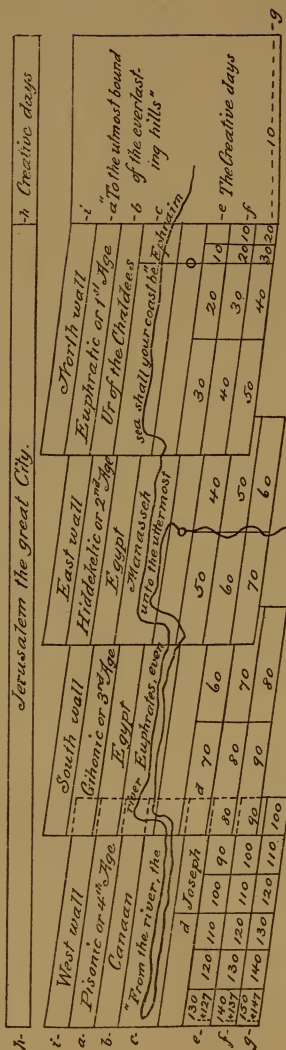 h- Jerusalem the great City. -h Creative days
i- West wall South wall East wall North wall -i
a- Pisonic or 4th Age Gihonic or 3rd Age Hiddekelic or 2nd Age Euphratic or 1st Age -a "To the utmost bound
b- Canaan Egypt Egypt Ur of the Chaldees -b of the everlast-
ing hills"
c- Manasseh Ephraim -c
"From the river, the river Euphrates, even unto the uttermost sea shall your coast be."
d Joseph d
e- 130 127 120 110 100 90 80 70 60 50 40 30 20 10 -e The Creative days
f- 140 137 130 120 110 100 90 80 70 60 50 40 30 20 10 -f
g- 150 147 140 130 120 110 100 90 80 70 60 50 40 30 20 10 -g